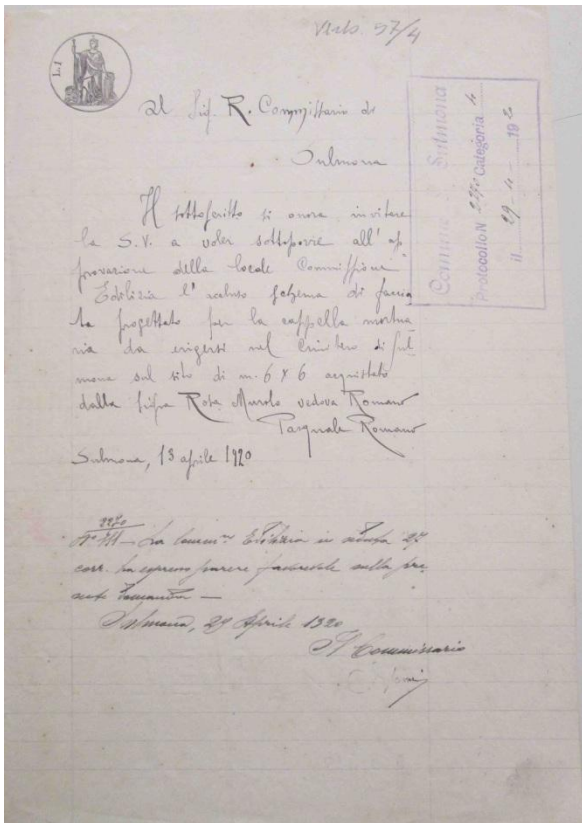 Verb. 97/4
L.1
Al Sig. R. Commissario di
Sulmona
Comune di Sulmona
Protocollo N 2270 Categoria 4
il 29-4-1920
Il sottoscritto si onora invitare
la S.V. a voler sottoporre all'ap
provazione della locale Commissione
Edilizia l'accluso schema di faccia
ta progettato per la cappella mortua
ria da erigersi nel Cimitero di Sul
mona sul sito di m. 6 x 6 acquistato
dalla sig.ra Rosa Murolo vedova Romano
Pasquale Romano
Sulmona, 13 aprile 1920
2270
La Comm.ne Edilizia in seduta 27
corr. ha espresso parere favorevole sulla pre
sente domanda —
Sulmona, 29 Aprile 1920
Il Commissario